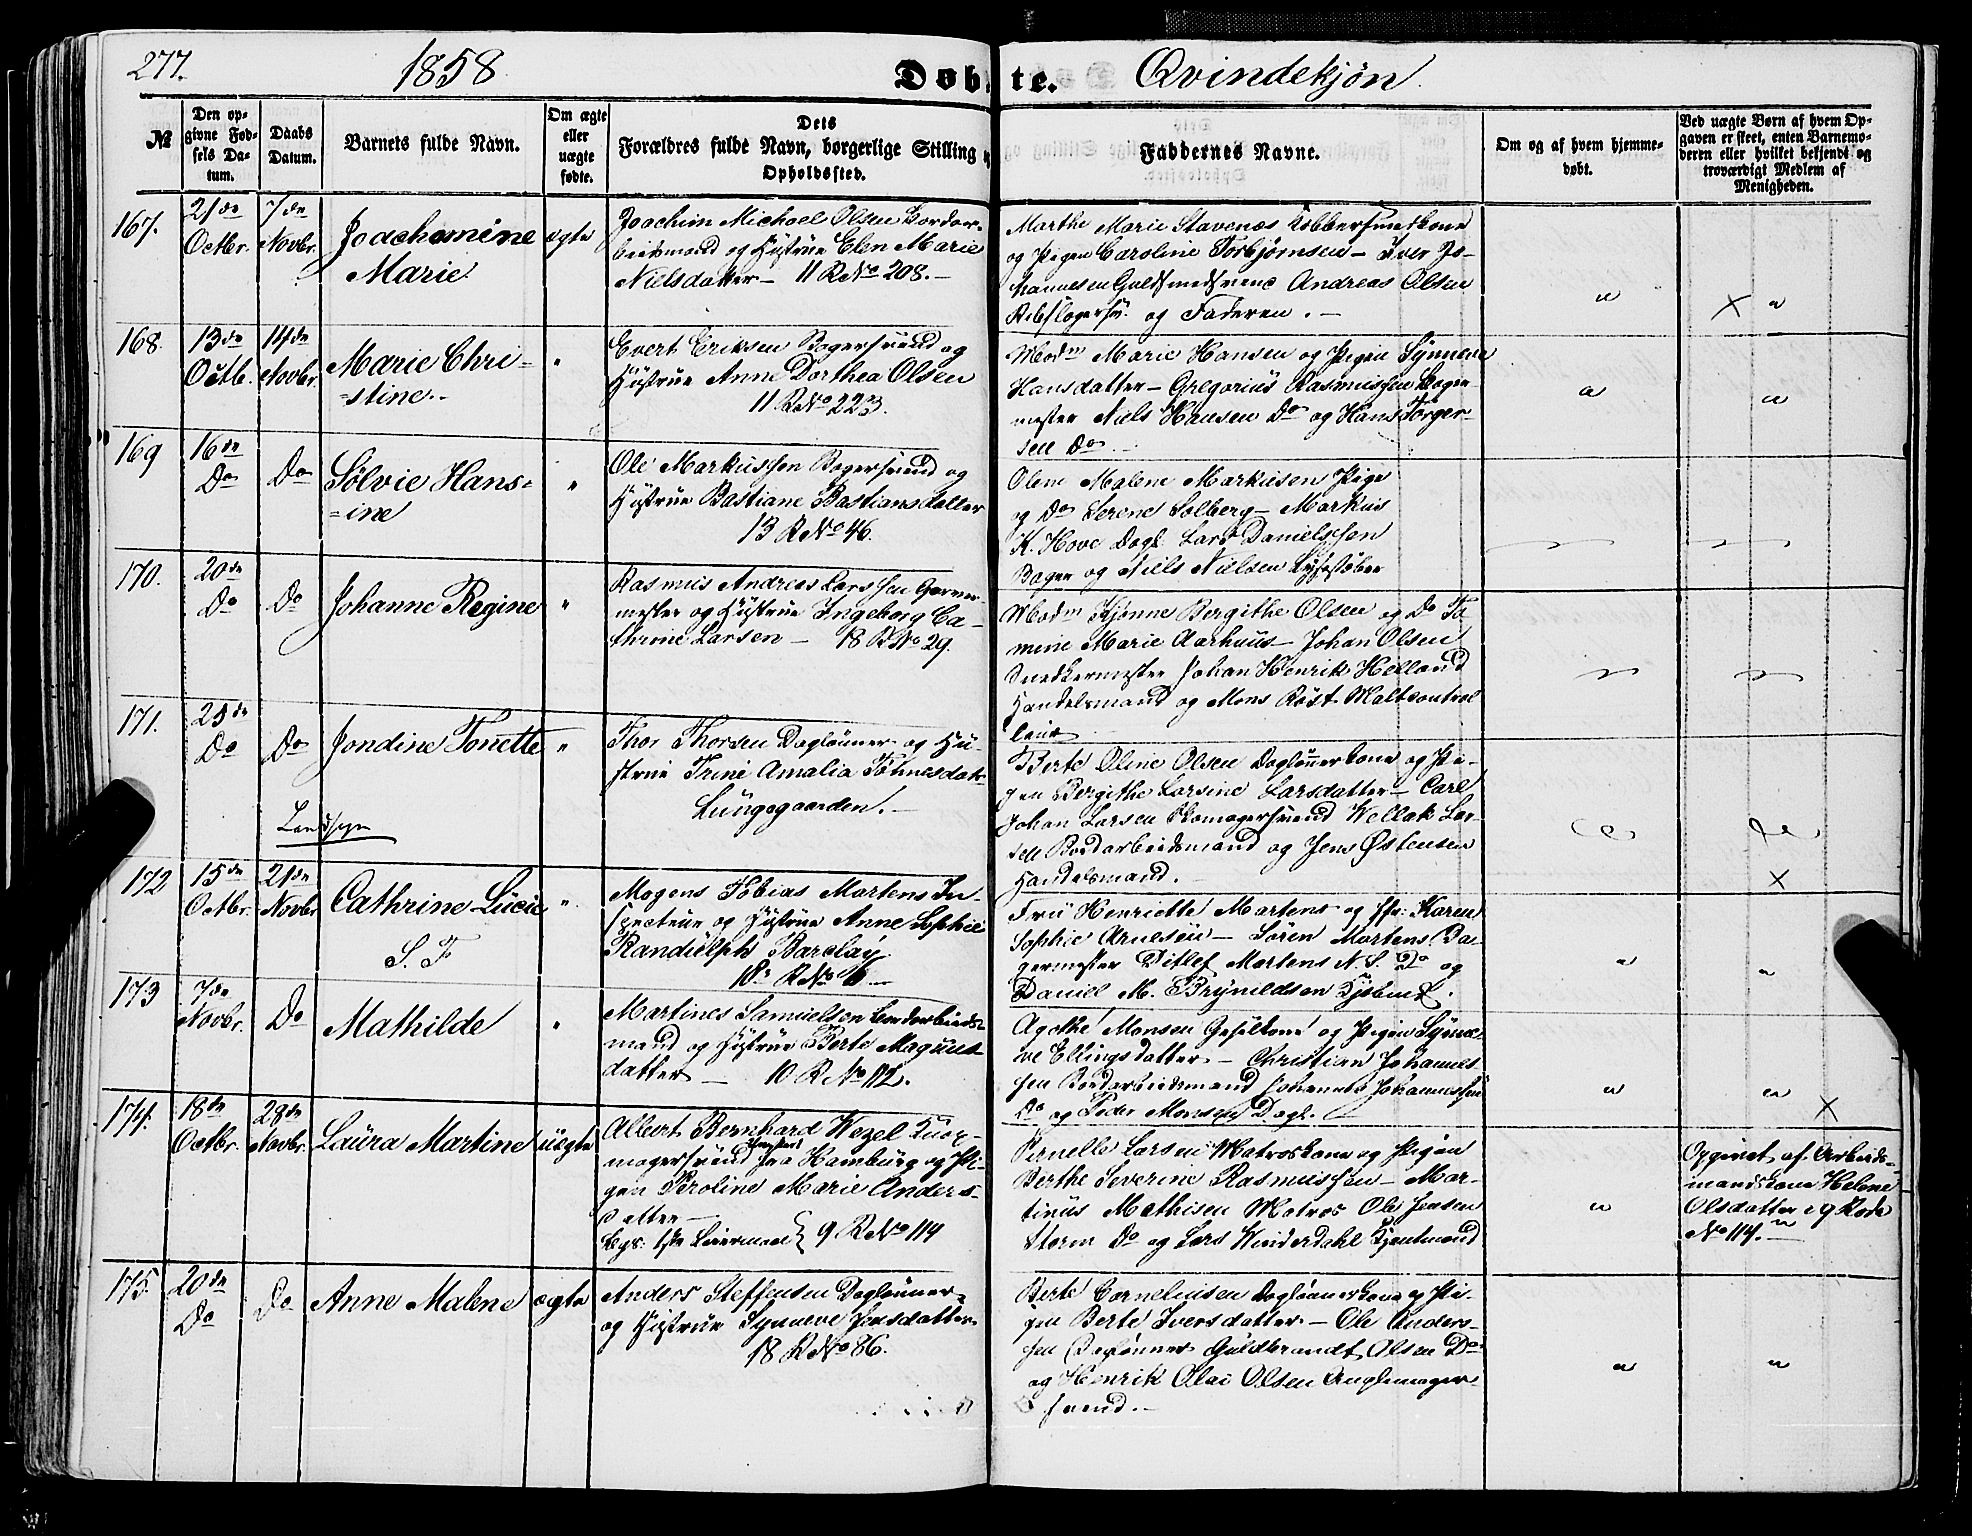 277.
1858
Døbte.
Qvindekjøn
№
Den op-
givne Fød-
sels Da-
tum.
Daabs
Datum.
Barnets fulde Navn.
Om ægte
eller
uægte
fødte.
Dets
Forældres fulde Navn, borgerlige Stilling og
Opholdssted.
Faddernes Navne.
Om og af hvem hjemme-
døbt.
Ved uægte Børn af hvem Op-
gaven er skeet, enten Barnemo-
deren eller hvilket bekjendt og
troværdigt Medlem af
Menigheden.
167.
21de
Octbr.
7de
Novbr.
Joachimine
Marie
ægte
Joachim Michael Olsen Bordar-
beidsmand og Hustrue Elen Marie
Nielsdatter — 11 R No 208. —
Marthe Marie Stavenæs Kobbersmedkone
og Pigen Caroline Torbjørnsen — Iver Jo-
hannesen Guldsmedsvend Andreas Olsen
Rebslagersv. og Faderen. —
168.
13de
Octb.
14de
Novbr.
Marie Chri-
=stine.
Evert Eriksen Bagersvend og
Hustrue Anne Dorthea Olsen
11 R No 223.
Madm Marie Hansen og Pigen Synneve
Hansdatter — Gregorius Rasmussen Bager-
mester Niels Hansen Do og Hans Torger-
sen Do
169
16de
Do
Do
Sølvie Hans=
=ine
Ole Markussen Bagersvend og
Hustrue Bastiane Bastiansdatter
13 R No 46.
Olene Malene Markusen Pige
og Do Serene Solberg — Markus
K. Hove Dagl. Lars Danielssen
Bager og Niels Nielsen Lysstøber
170.
20de
Do
Do
Johanne Regine
Rasmus Andreas Larssen Garver-
mester og Hustrue Ingeborg Ca-
thrine Larsen — 18 R No 29.
Madm Kjønne Bergithe Olsen og Do Ta-
mine Marie Aarhuus — Johan Olsen
Snedkermester Johan Henrik Helland
Handelsmand og Mons Røst Maltcontrol
leur
171.
25de
Do
Do
Jondine Tonette
Thor Thorsen Daglønner og Hu-
strue Trine Amalia Tønnesdatr
Lungegaarden. —
Berte Oline Olsen Daglønnerkone og Pi-
gen Bergithe Larsine Larsdatter — Carl
Johan Larsen Skomagersvend Wellak Lar-
sen Bordarbeidsmand og Jens Østensen
Handelsmand.
172
15de
Octbr.
21de
Novbr
Cathrine Lucie
S. F
Mogens Tobias Martens In-
specteur og Hustrue Anne Sophie
Randulph Barclay
18 R No 6 —
Frü Henriette Martens og Frk: Karen
Sophie Arnesen — Søren Martens Ba-
germester Ditlef Martens N. S. Do og
Daniel M. Brynildsen Kjøbmd.
173
7de
Novbr.
Do
Mathilde
Martines Samuelsen Bordarbeids-
mand og Hustrue Berte Magnus-
datter — 10 R No 112.
Agathe Monsen Gesilkone og Pigen Synne-
ve Ellingsdatter — Christian Johannes-
sen Bordarbeidsmand Johannes Johannessen
Do og Peder Monsen Dagl.
174.
18de
Octbr.
28de
Novbr.
Laura Martine
uægte
Albert Bernhard Wezel Kurv-
magersvend fra Hamburg og Pi-
gen Peroline Marie Anders-
datter —
Begs: 1ste Leiermaal } 9 R No 114
Pernelle Larsen Matroskone og Pigen
Berthe Severine Rasmussen — Mar-
tinus Mathisen Matros Ole Jensen
Storm Do og Lars Winderdahl Kjentmand
Opgivet af Arbeids-
mandskone Helene
Olsdatter i 9 Rode
No 114.
175.
20de
Do
Do
Anne Malene
ægte
Anders Steffensen Daglønner
og Hustrue Synneve Jensdatter
18 R No 86.
Berte Corneliusen Daglønnerkone og Pi-
gen Berte Iversdatter — Ole Anders-
sen Daglønner Guldbrandt Olsen Do
og Henrik Olai Olsen Anglemager-
svend. —